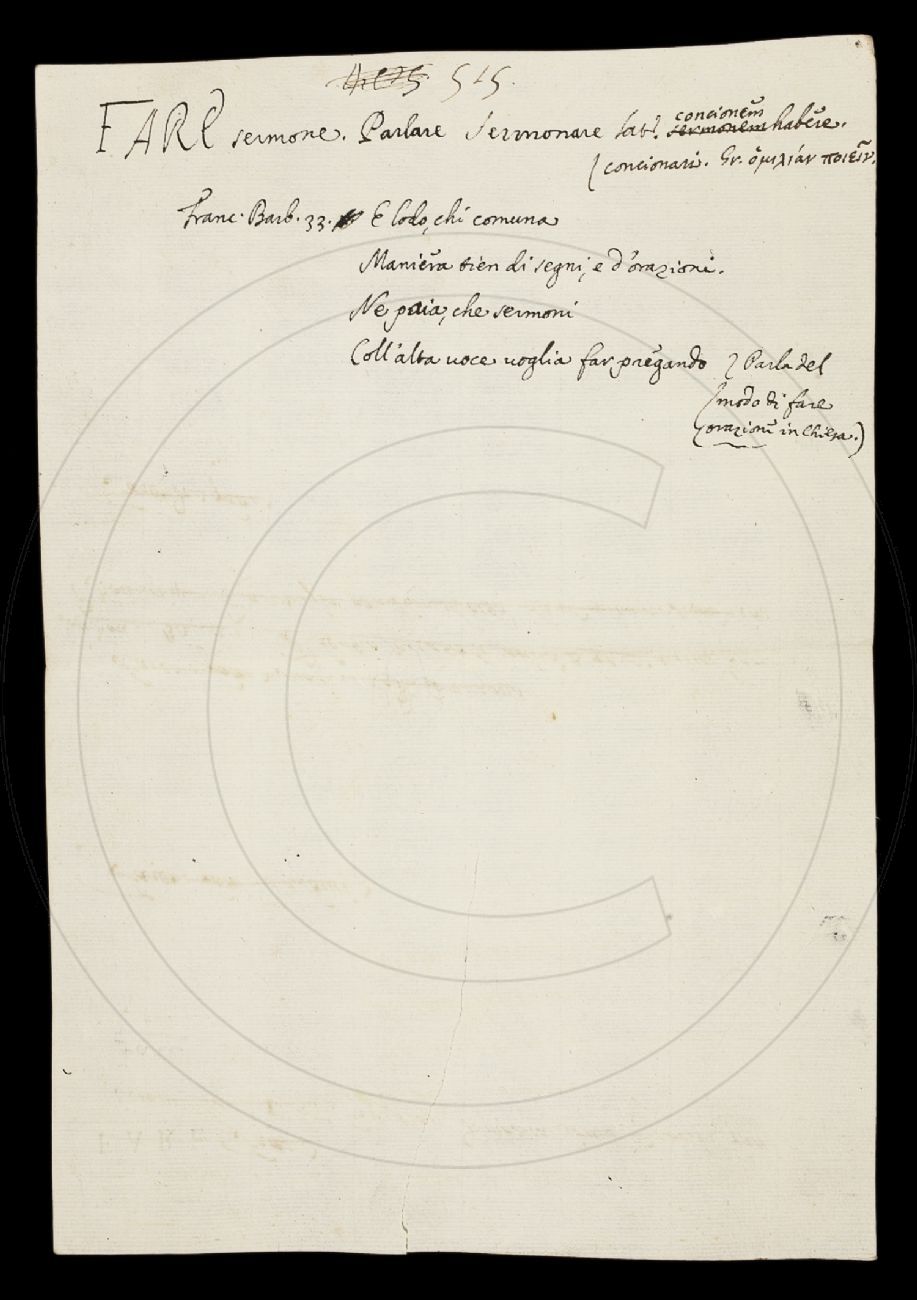 515.
FARE sermone. Parlare Sermonare Lat. concionem sermonem habere.
concionari. Gr. ὁμιλίαν ποιεῖν.
Franc. Barb. 33. E lodo, chi comuna
Maniera tien di segni, e d'orazioni.
Ne paia, che sermoni
Coll'alta voce voglia far pregando
Parla del
modo di fare
orazioni in Chiesa.)